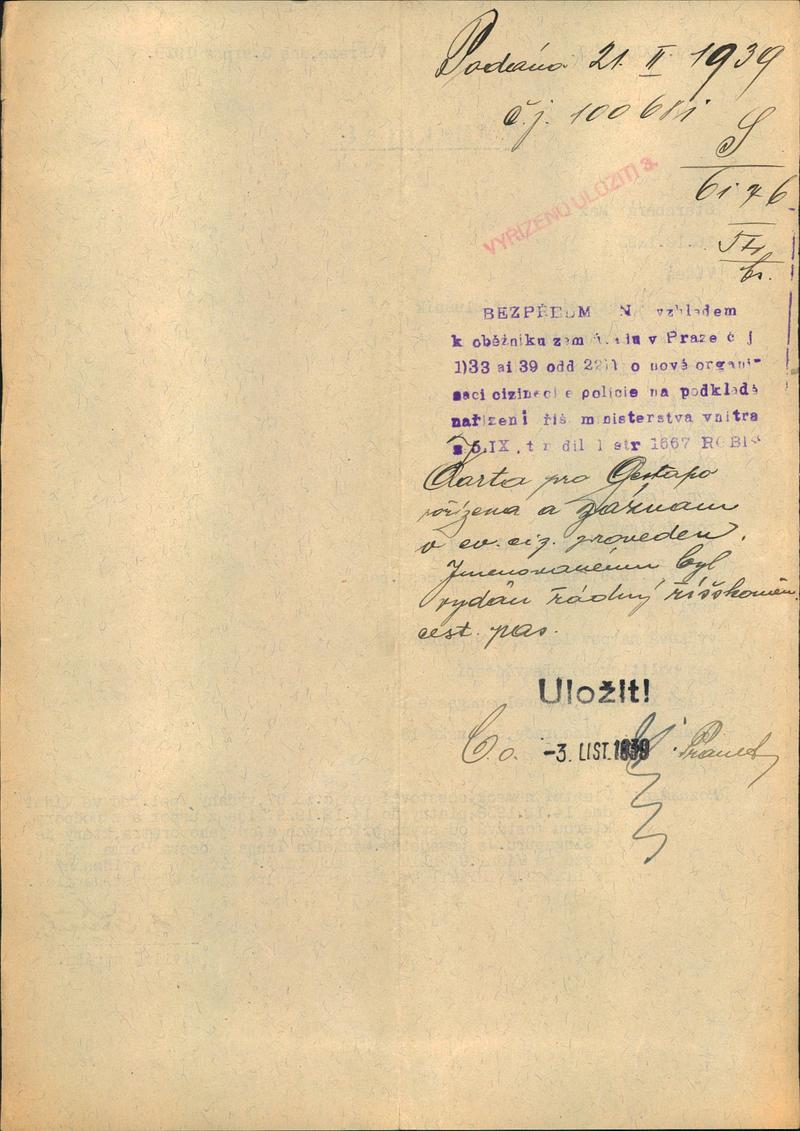 Podáno 21. II 1939
č.j. 100681
S
6176
VYŘÍZENO ULOŽIT! a.
BEZPŘEDM N vzhledem
k oběžníku zem úřadu v Praze č j
1)33 ai 39 odd 22 o nové organi-
saci cizinec e policie na podkladě
nařízení říš ministerstva vnitra
z 5.IX. t r díl I str 1667 RGBl
Karta pro Gestapo
pořízena a záznam
v ev. ciz. proveden.
Jmenovanému byl
vydán řádný říšskoněm.
cest. pas.
Uložit!
-3. LIST. 1939